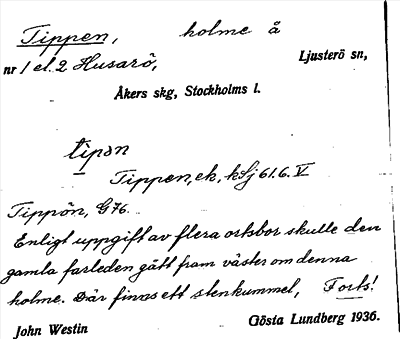 Tippen, holme å
nr 1 el. 2 Husarö, Ljusterö sn,
Åkers skg, Stockholms l.
tipən
Tippen, ek, kSj 61.6. V
Tippön, G76.
Enligt uppgift av flera ortsbor skulle den
gamla farleden gått fram väster om denna
holme. Där finns ett stenkummel, Forts!
John Westin Gösta Lundberg 1936.